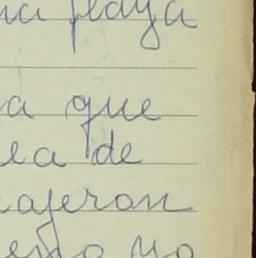 na playa
a que
ea de
ajeron
no